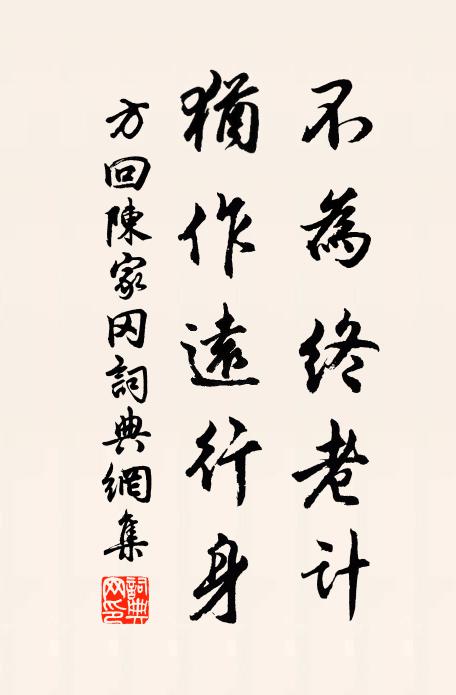 不為終老計
猶作遠行身
方回陳家冈詞典網集
詞典網印